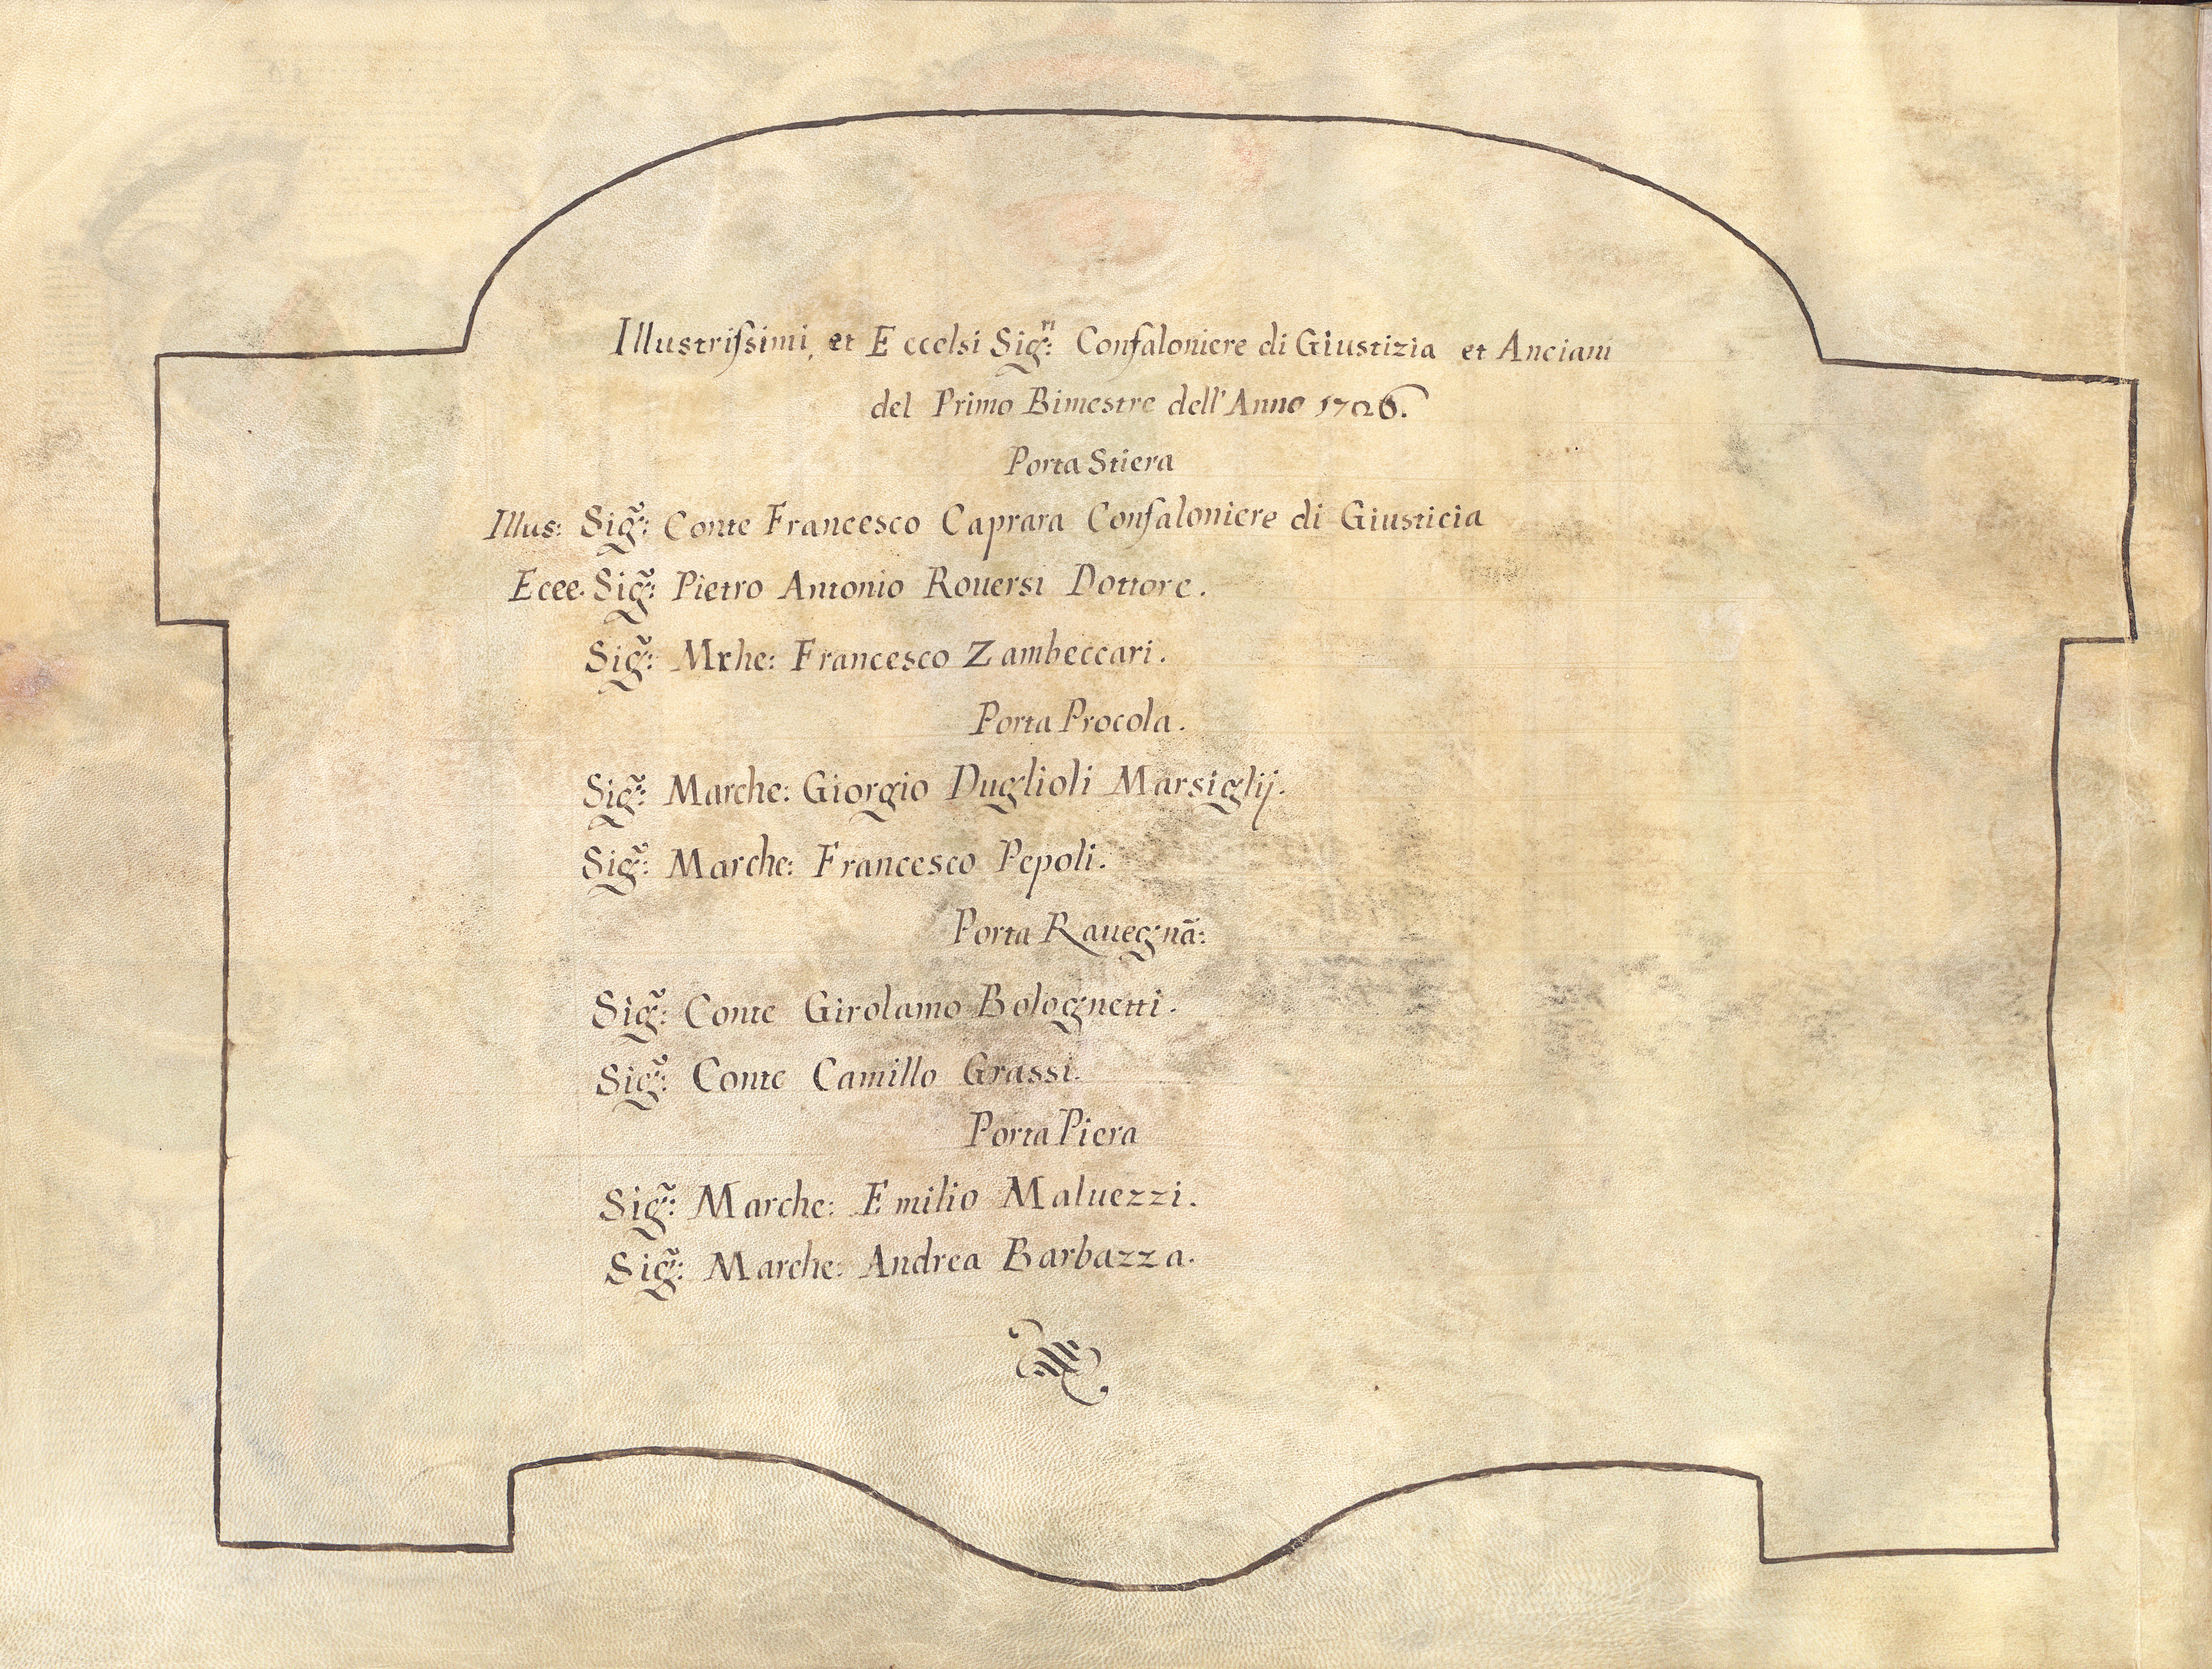 Illustrissimi, et Eccelsi Sig:ri Confaloniere di Giustizia et Anciani
del Primo Bimestre dell'Anno 1726.
Porta Stiera
Illus: Sig:r Conte Francesco Caprara Confaloniere di Giusticia
Ecee. Sig:r Pietro Antonio Rouersi Dottore.
Sig:r Mrhe: Francesco Zambeccari.
Porta Procola.
Sig:r Marche: Giorgio Duglioli Marsiglij.
Sig:r Marche: Francesco Pepoli.
Porta Rauegnã:
Sig:r Conte Girolamo Bolognetti.
Sig:r Conte Camillo Grassi.
Porta Piera
Sig:r Marche: Emilio Maluezzi.
Sig:r Marche: Andrea Barbazza.